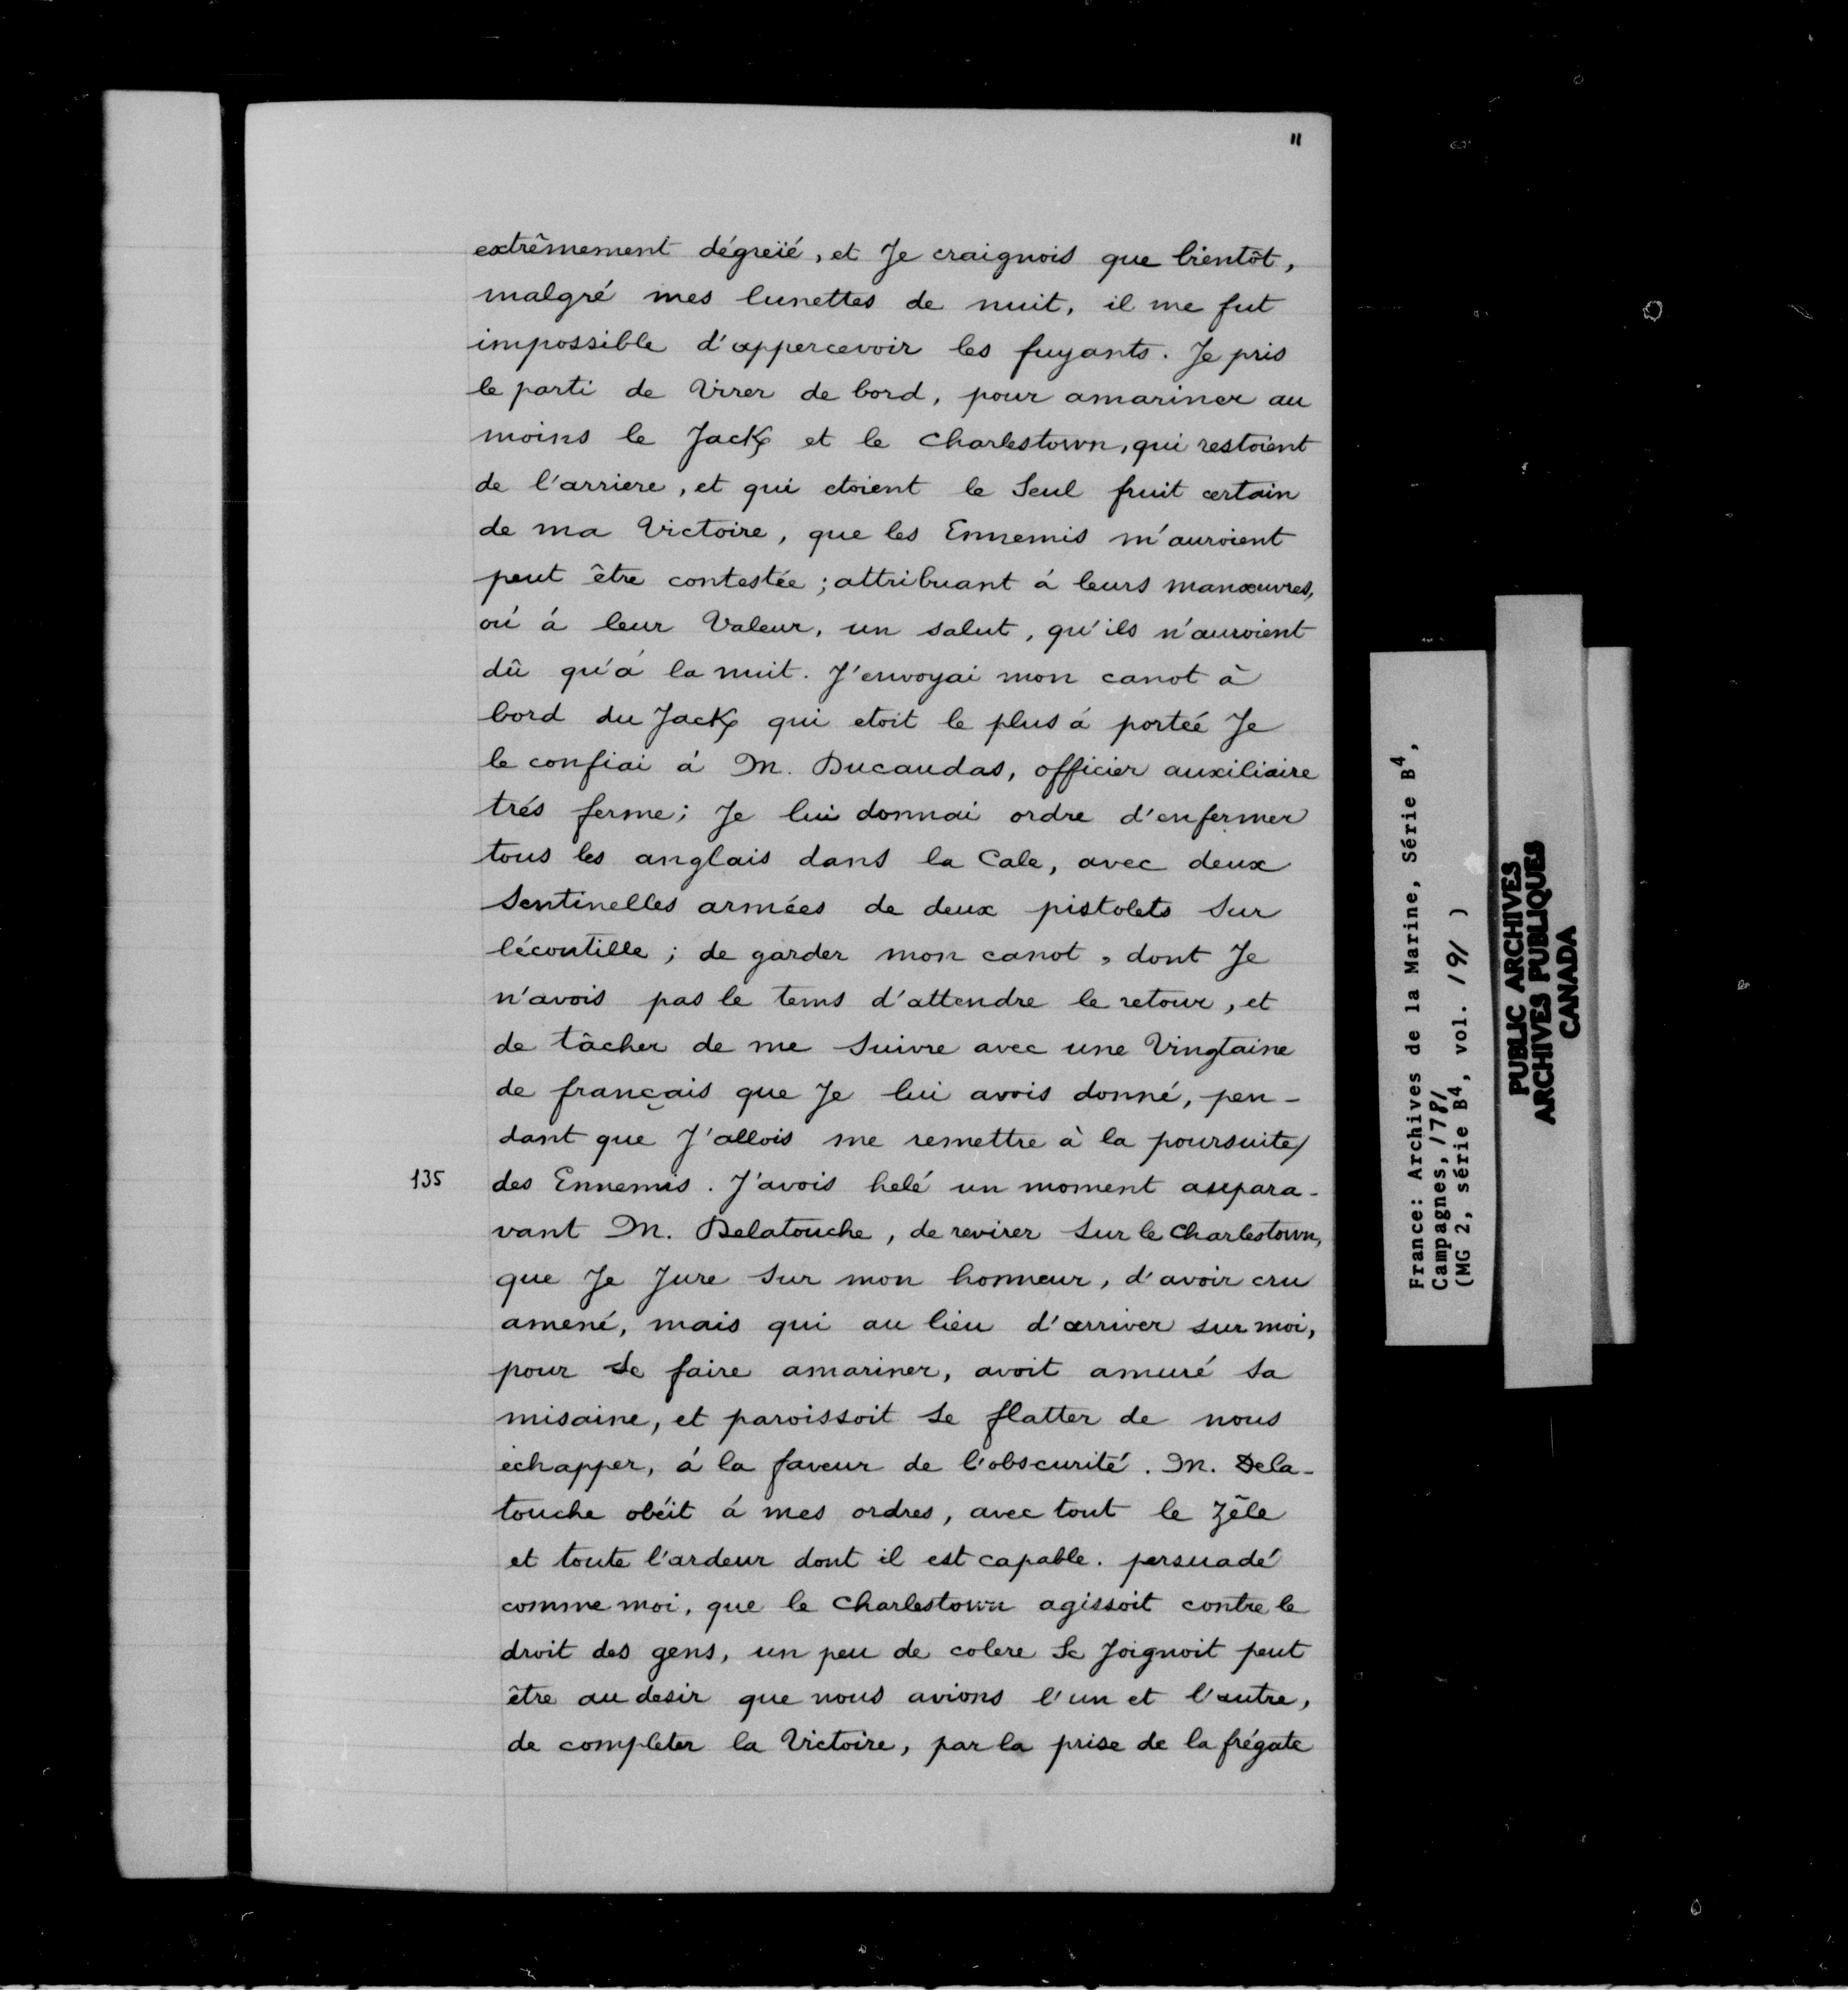 11
extrêmement dégreïé, et Je craignois que bientôt,
malgré mes lunettes de nuit, il me fut
impossible d'appercevoir les fuyants. Je pris
le parti de Virer de bord, pour amariner au
moins le Jack et le Charlestown, qui restoient
de l'arriere, et qui etoient le Seul fruit certain
de ma Victoire, que les Ennemis m'auroient
peut être contestée ; attribuant á leurs manœuvres,
oú á leur Valeur, un salut, qu'ils n'auroient
dû qu'á la nuit. J'envoyai mon canot à
bord du Jack qui etoit le plus á porteé Je
le confiai á M. Ducaudas, officier auxiliaire
trés ferme ; Je lui donnai ordre d'enfermer
tous les anglais dans la Cale, avec deux
Sentinelles armées de deux pistolets Sur
lécoutille ; de garder mon canot, dont Je
n'avois pas le tems d'attendre le retour, et
de tâcher de me Suivre avec une Vingtaine
de français que Je lui avois donné, pen-
dant que J'allois me remettre à la poursuite/
135 des Ennemis. J'avois helé un moment aupara-
vant M. Delatouche, de revirer Sur le Charlestown,
que Je Jure Sur mon honneur, d'avoir cru
amené, mais qui au lieu d'arriver sur moi,
pour Se faire amariner, avoit amuré Sa
misaine, et paroissoit Se flatter de nous
échapper, á la faveur de l'obscurité. M. Dela-
touche obéit á mes ordres, avec tout le Zêle
et toute l'ardeur dont il est capable. persuadé
comme moi, que le Charlestown agissoit contre le
droit des gens, un peu de colere Se Joignoit peut
être au desir que nous avions l'un et l'autre,
de completer la Victoire, par la prise de la frégate
France: Archives de la Marine, Série B4,
Campagnes, 1781
(MG 2, série B4, vol. 191 )
PUBLIC ARCHIVES
ARCHIVES PUBLIQUES
CANADA